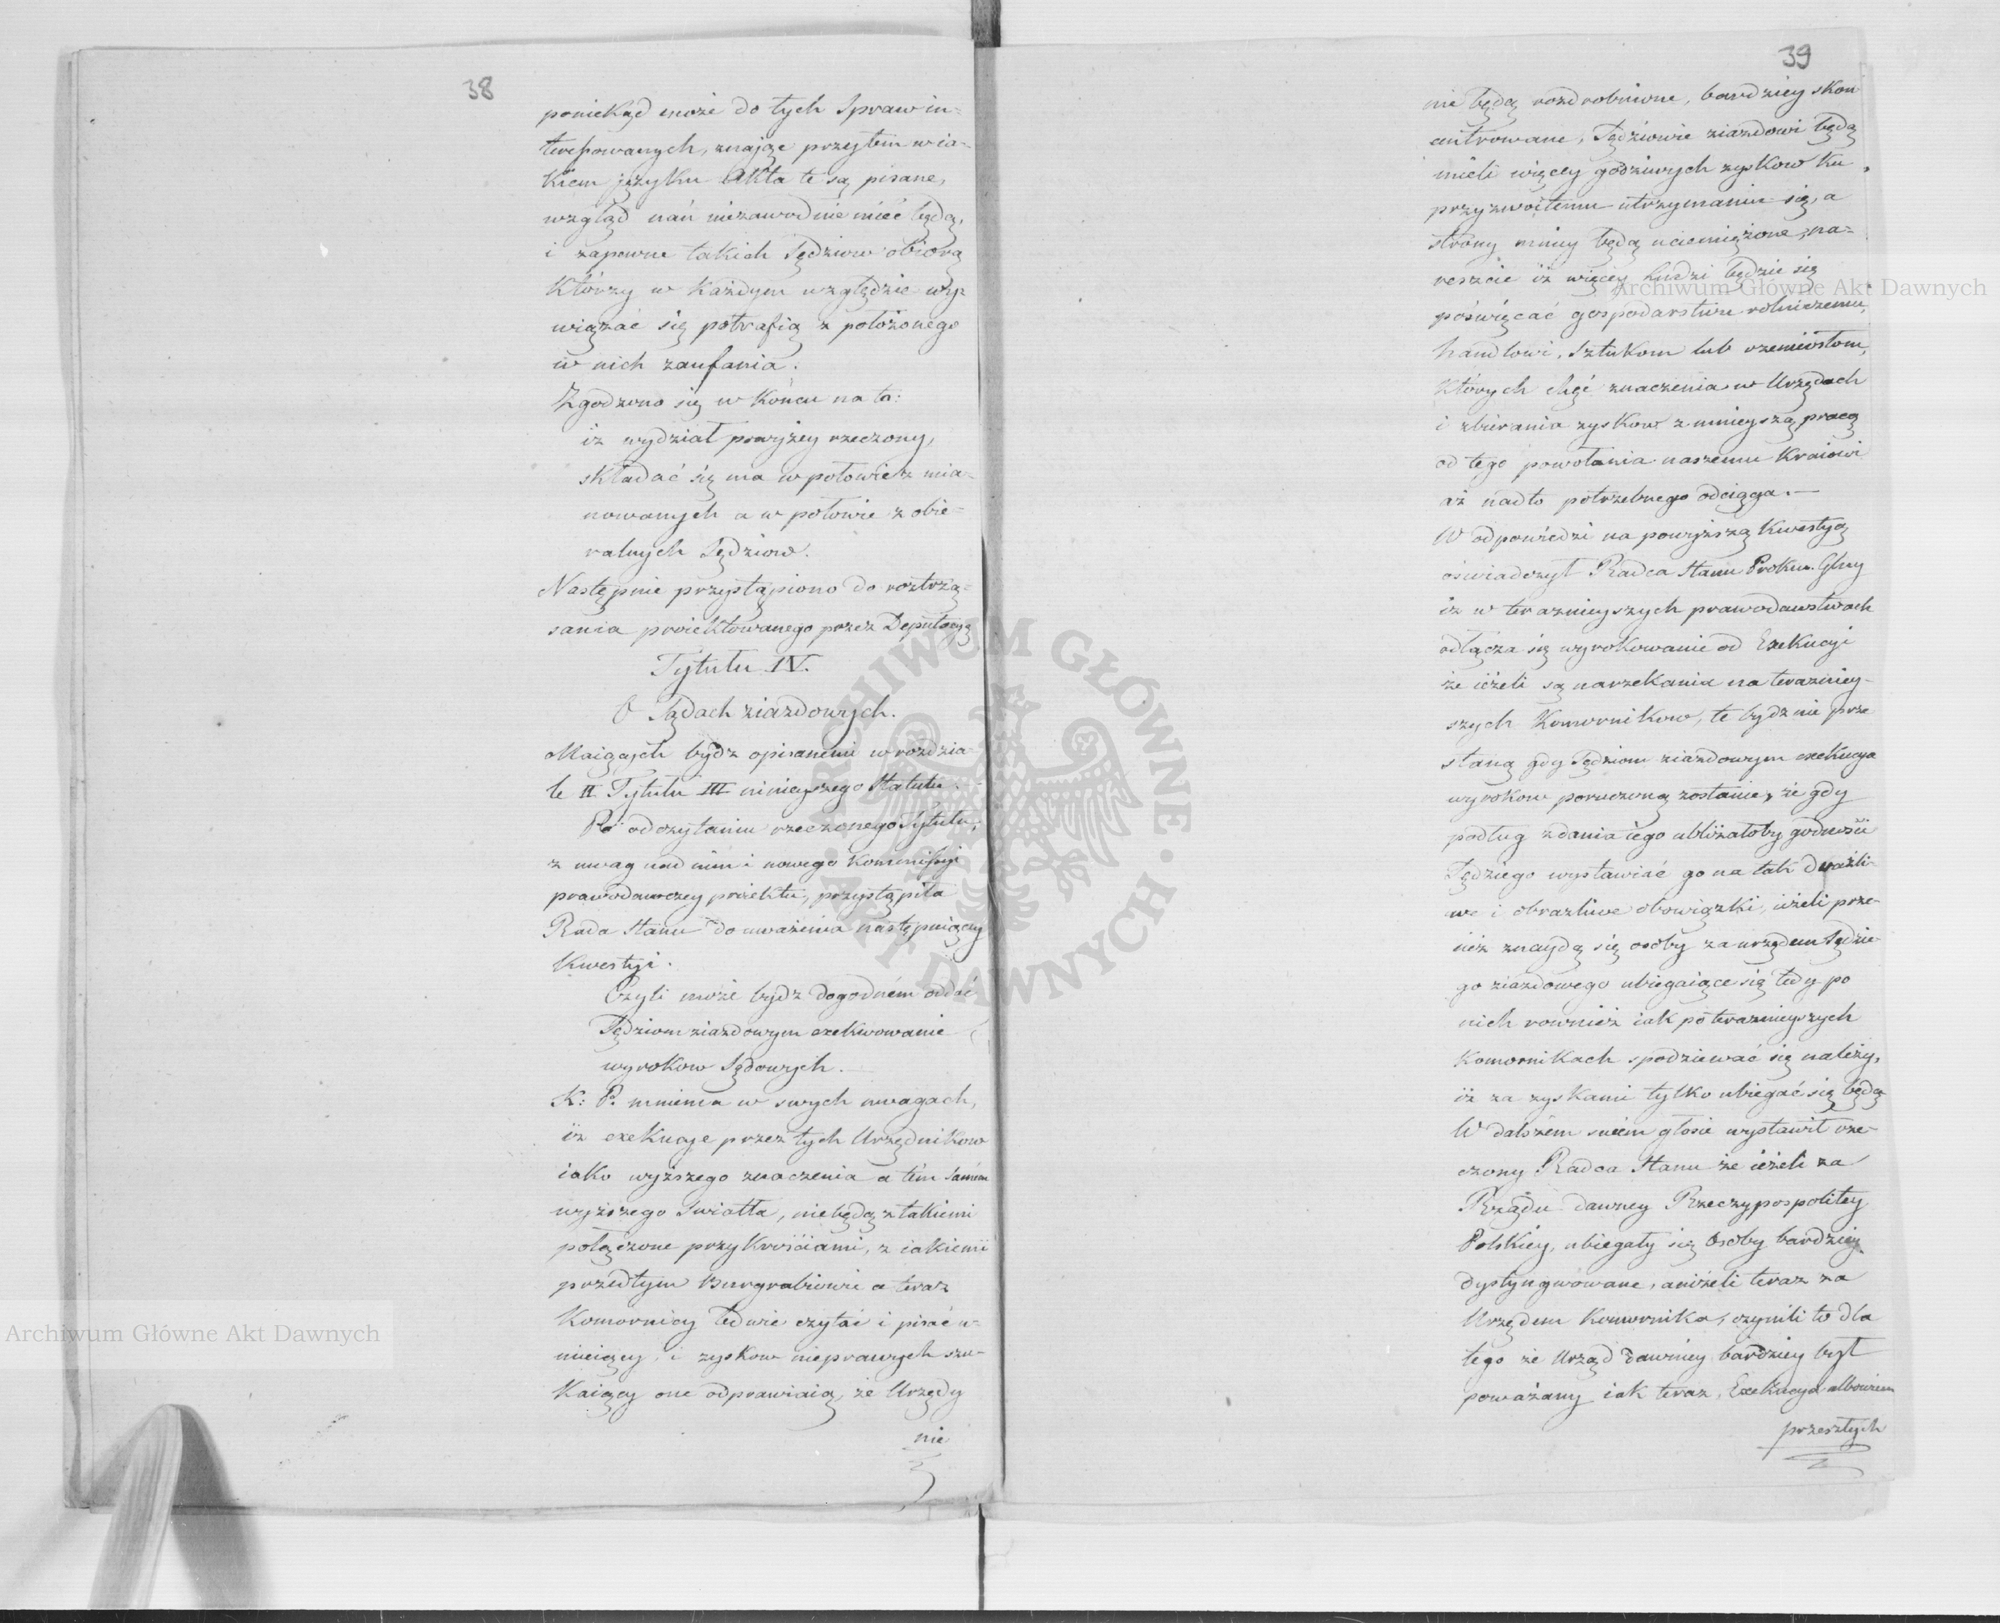 38
poniekąd może do tych Spraw in-
teressowanych, znając przytem w ia-
kiem języku Akta te są pisane,
wzgląd nań niezawodnie mieć będą,
i zapewne takich Sędziow obiorą
Którzy w Każdym względzie wy-
wiązać się potrafią z położonego
w nich zaufania.
Zgodzono się w Końcu na to:
iż wydział powyżey rzeczony,
składać się ma w połowie z mia-
nowanych a w połowie z obie-
ralnych Sędziow.
Następnie przystąpiono do roztrzą-
sania proiektowanego przez Deputacyą
Tytułu IV.
O Sądach ziazdowych.
Maiących bydz opisanemi w rozdzia-
le II Tytułu III ninieyszego Statutu.
Po odczytaniu rzeczonego Tytułu,
z uwag nad nim i nowego Kommissyi
prawodawczey proiektu, przystąpiła
Rada Stanu do uważenia następuiącey
Kwestyi.
Czyli może bydz dogodném oddać
Sędziom ziazdowym exekwowanie
wyrokow Sądowych.
K: P. mniema w swych uwagach,
iż exekucye przez tych Urzędnikow
iako wyższego znaczenia a tém samém
wyższego Swiatła, nie będą z takiemi
połączone przykrościami, z iakiemi
przedtym Burgrabiowie a teraz
Komornicy ledwie czytać i pisać u-
mieiący, i zyskow nieprawych szu-
kaiący one odprawiaią, że Urzędy
nie
39
nie będą rozdrobnione, bardziey skon
centrowane, Sędziowie ziazdowi będą
mieli więcey godziwych zyskow ku
przyzwoitemu utrzymaniu się, a
strony mniey będą uciemiężone, na-
reszcie iż więcey Ludzi będzie się
poświęcać gospodarstwu rolniczemu,
handlowi, Sztukom lub rzemiosłom,
Których chęć znaczenia w Urzędach
i zbierania zyskow z mnieyszą pracą
od tego powołania naszemu Kraiowi
aż nadto potrzebnego odciąga.—
W odpowiedzi na powyższą Kwestyą
oświadczył Radca Stanu Prokur. Glny
iż w teraznieyszych prawodawstwach
odłącza się wyrokowanie od Exekucyi
że ieżeli są narzekania na terazniey-
szych Komornikow, te bydz nie prze
staną gdy Sędziom ziazdowym exekucya
wyrokow poruczoną zostanie, że gdy
podług zdania iego ubliżałoby godności
Sędziego wystawiać go na tak drażli-
we i obraźliwe obowiązki, ieżeli prze-
cież znaydą się osoby za urzędem Sędzie-
go ziazdowego ubiegaiące się tedy po
nich rownież iak po teraznieyszych
Komornikach spodziewać się należy,
iż za zyskami tylko ubiegać się będą
W dalszem swém głosie wystawił rze-
czony Radca Stanu że ieżeli za
Rządu dawney Rzeczypospolitey
Polskiey, ubiegały się Osoby bardziey
dystyngwowane, aniżeli teraz za
Urzędem Komornika, czynili to dla
tego że Urząd dawniey bardziey był
poważany iak teraz, Exekucya albowiem
przeszłych
ARCHIWUM GŁÓWNE AKT DAWNYCH
Archiwum Główne Akt Dawnych
Archiwum Główne Akt Dawnych